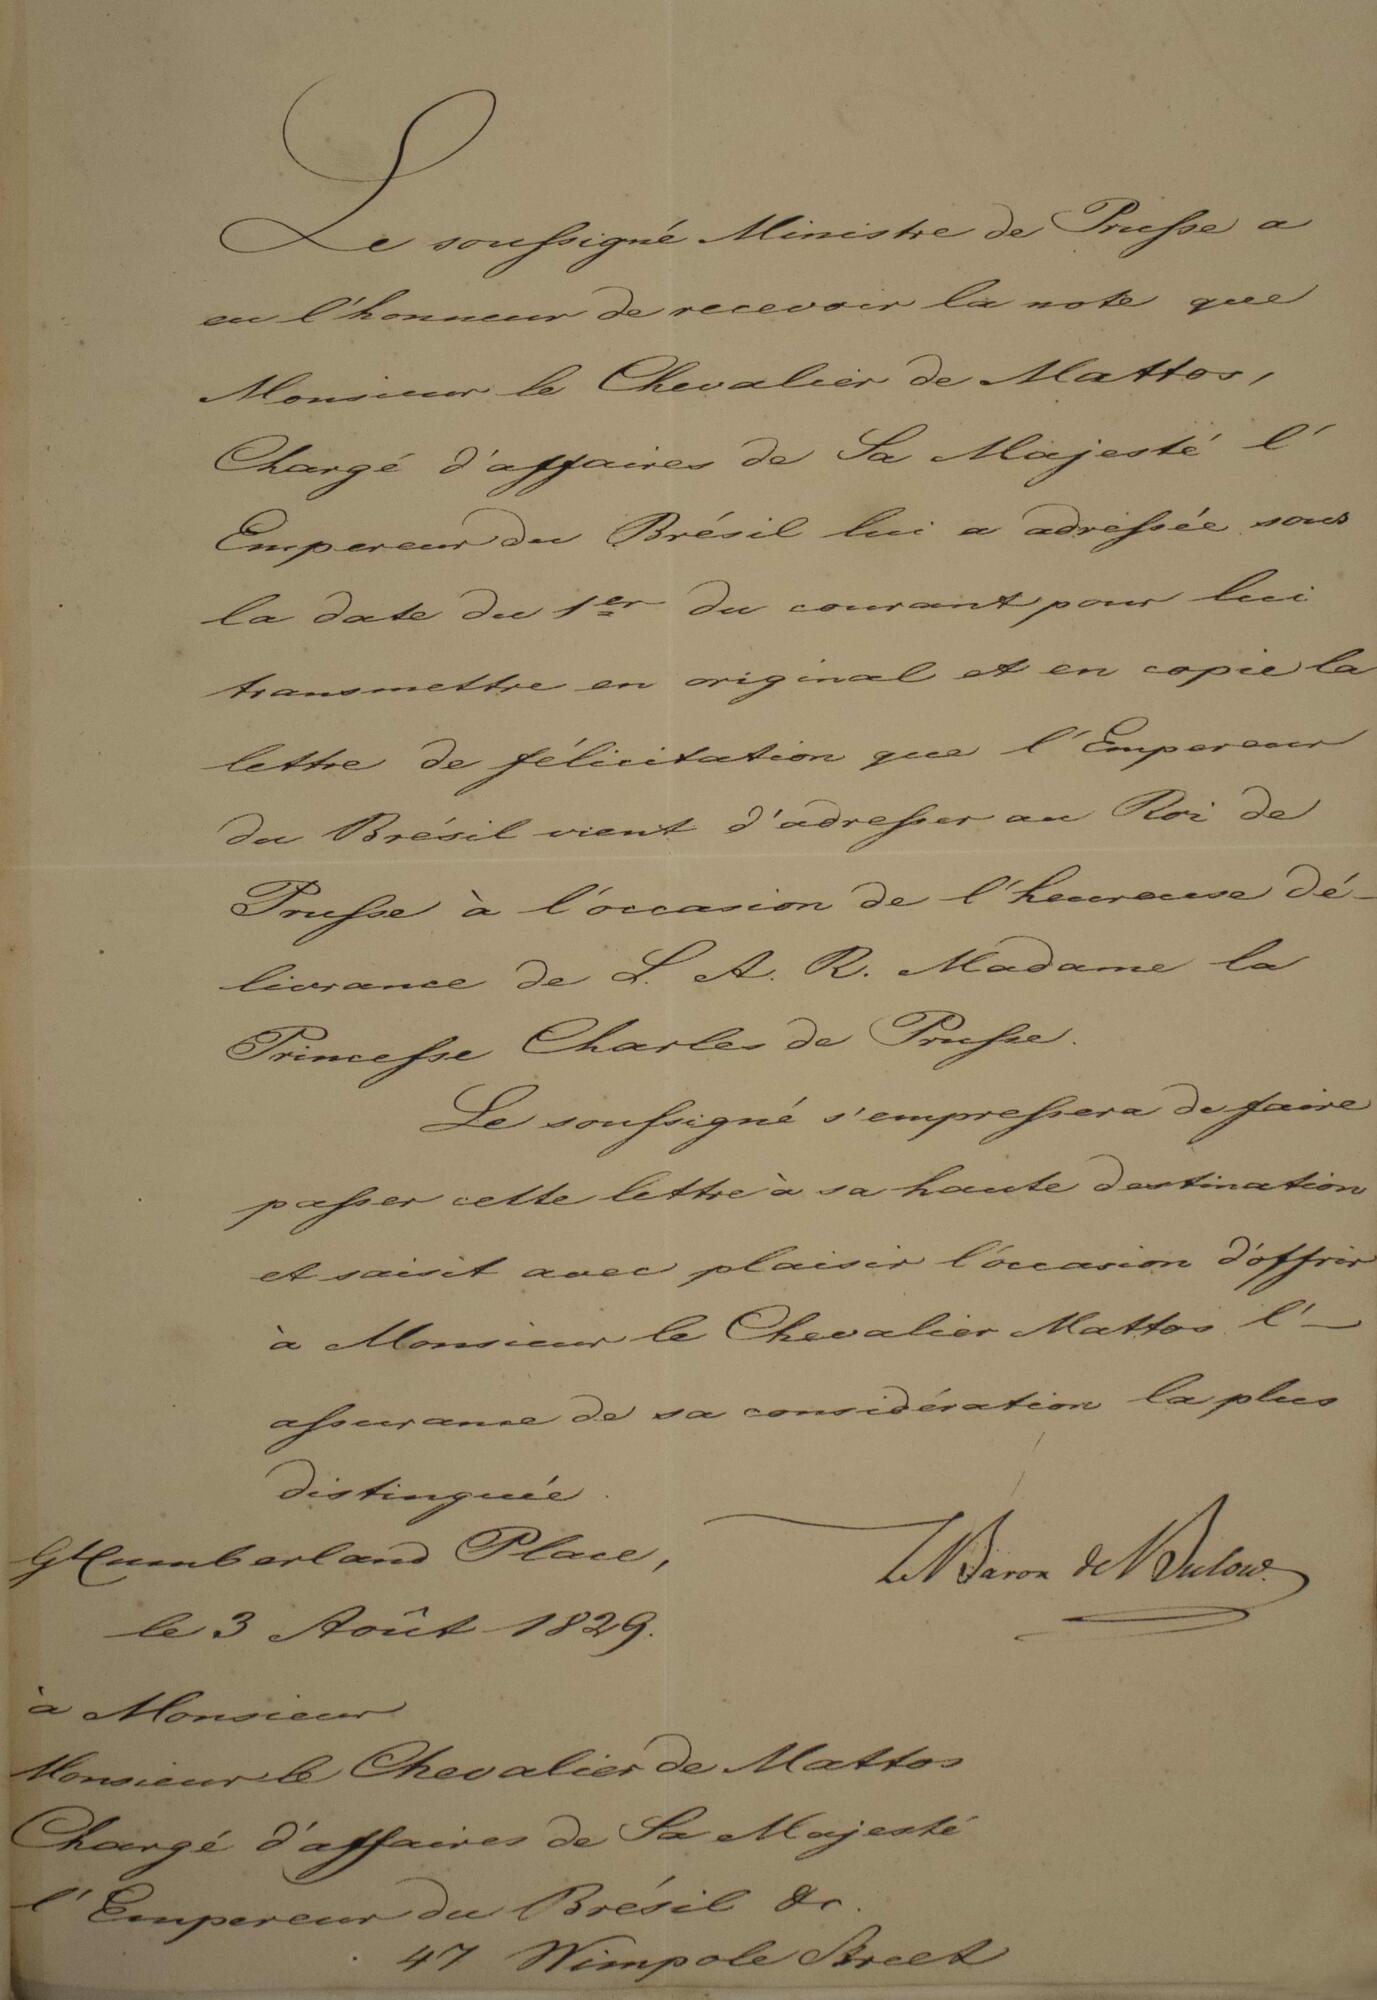 Le soussigné Ministre de Prusse a
eu l'honneur de recevoir la note que
Monsieur le Chevalier de Mattos,
Chargé d'affaires de Sa Majesté l'
Empereur du Brésil lui a adressée sous
la date du 1er du courant pour lui
transmettre en original et en copie la
lettre de félicitation que l'Empereur
du Brésil vient d'adresser au Roi de
Prusse à l'occasion de l'heureuse dé-
livrance de S. A. R. Madame la
Princesse Charles de Prusse.
Le soussigné s'empressera de faire
passer cette lettre à sa haute destination
et saisit avec plaisir l'occasion d'offrir
à Monsieur le Chevalier Mattos l'-
assurance de sa considération la plus
distinguée.
Le Baron de Bulow.
Gt Cumberland Place,
le 3 Août 1829.
à Monsieur
Monsieur le Chevalier de Mattos
Chargé d'affaires de Sa Majesté
l'Empereur du Brésil &c.
47 Wimpole Street